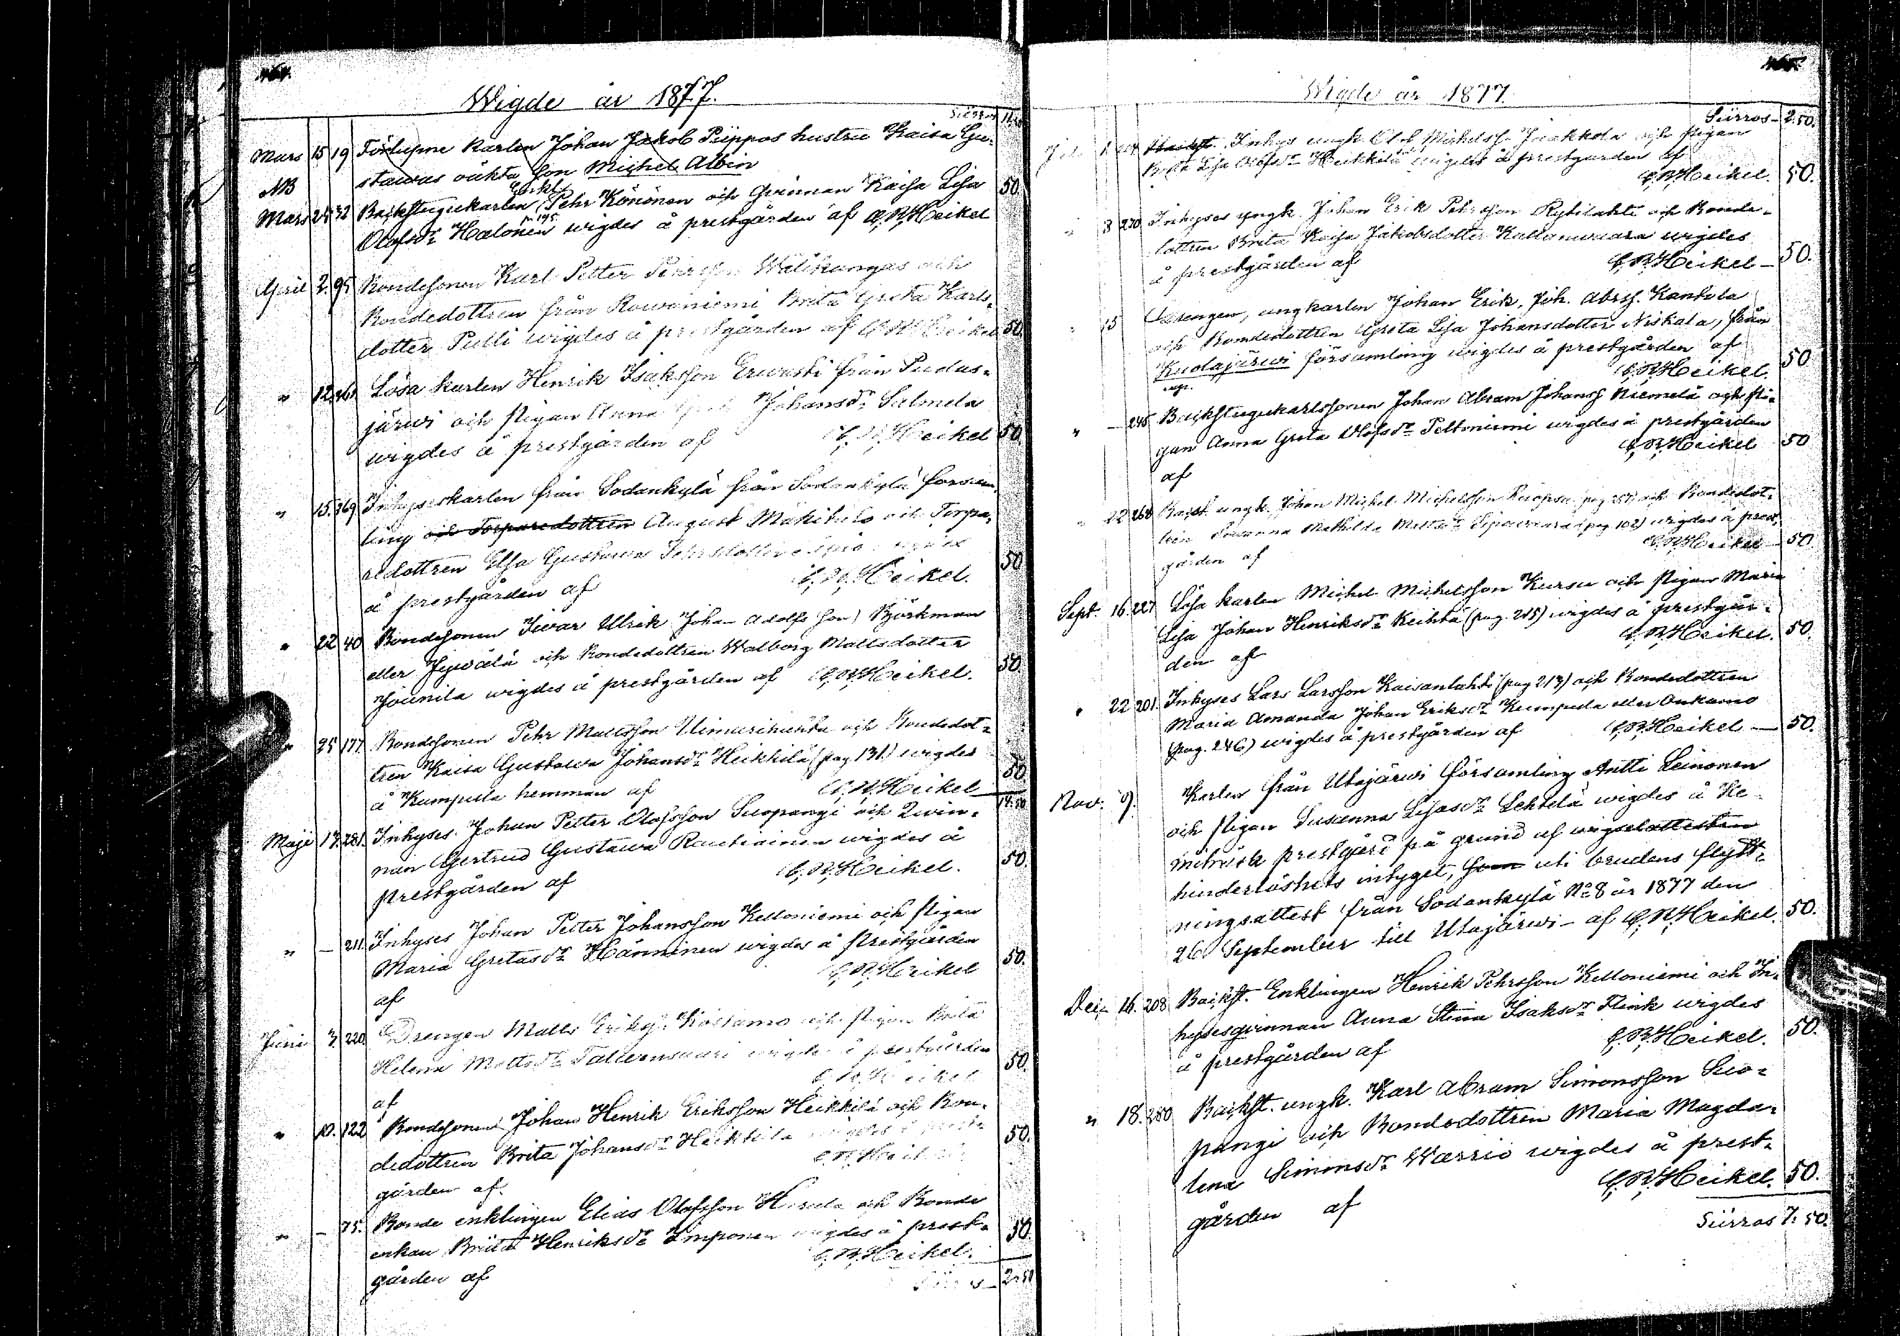 Wigde år 1877.
Siirros
Mars 15 19 Förlupne karlen Johan Jakob Piippos hustru Kaisa Gu-
stawas oäkta Son Michel Albin
NB
Mars 24 32 Backstugukarlen Enkl. Pehr Könönen och Qvinnan Kaisa Lisa 50.
Olofsdr Hælonen p. 195 wigdes å prestgården af C.R. Heikel
April 2. 95 Bondesonen Karl Petter Pehrsson Wälikangas och
Bondedottren från Rowaniemi Brita Greta Karls-
dotter Pulli wigdes å prestgården af C.R. Heikel 50.
" 12. Lösa karlen Henrik Isaksson Erwasti från Pudas-
järwi och pigan Anna Johansdr Salmela
wigdes å prestgården af C.R. Heikel 50.
" 15. 169 Inhyseskarlen från Sodankylä från Sodankylä försam-
ling och Torparedottren August Mäkitalo och Torpa-
redottren Elsa Gustawa Pehrsdotter wigdes
å prestgården af C.R. Heikel. 50
" 22 40 Bondesonen Iwar Ulrik Johan Adolfs son Björkman
eller Jejwälä och Bondedottren Walborg Mattsdotter
Jounila wigdes å prestgården af C.R. Heikel. 50.
" 25 177. Bondesonen Pehr Mattsson Uimariniemi och Bondedot-
tren Kaisa Gustawa Johansdr Heikkilä (pag 131) wigdes
å Kumpula hemman af C.R. Heikel 50
Maji 17. 281. Inhyses. Johan Petter Olofsson Suopangi och Qwin-
nan Gertrud Gustawa Rautiainen wigdes å
prestgården af C.R. Heikel. 50.
" — 211. Inhyses Johan Petter Johansson Kelloniemi och pigan
Maria Gretasdr Hänninen wigdes å prestgården
af C.R. Heikel 50.
Juni 3. 220. Drengen Matts Eriks. Kostamo och pigan Brita
Helena Mattsdr Tallewnsaari wigdes å prestgården
af C.R. Heikel 50.
" 10. 122 Bondesonen Johan Henrik Eriksson Heikkilä och Bon-
dedottren Brita Johansdr Heikkilä wigdes å prest-
gården af. C.R. Heikel 50.
" — 75. Bonde enklingen Elias Olofsson och Bonde
enkan Brita Henriksdr Imponen wigdes å prest-
gården af C.R. Heikel. 50.
Siirros
Wigde år 1877.
Siirros 2.50.
Juli 1 Backst. Inhys ungk. Olof Michelss. Juakkola och pigan
Brita Lisa Olofsdr Heikkilä wigdes å prestgården af
C.R. Heikel. 50.
" 8 230 Inhyses ungk. Johan Erik Pehrsson Kylilahti och Bonde-
dottren Brita Kaisa Jakobsdotter Kallonwaara wigdes
å prestgården af C.R. Heikel — 50.
" 15 Drengen, ungkarlen Johan Erik, Joh. Abrss. Kantola
och Bondedottren Greta Lisa Johansdotter Niskala, från
Kuolajärwi församling wigdes å prestgården af
C.R. Heikel. 50
" — 245 Backstugukarlssonen Johan Abram Johanss Niemelä och pi-
gan Anna Greta Olofsdr Peltoniemi wigdes å prestgården
af C.R. Heikel 50
" 22 268 Backst. ungk. Johan Michel Michelsson Ruopsa (pag 257) och Bondedot-
tren Susanna Mathilda Mattsdr Sipowaara (pag 102) wigdes å prest-
gården af C.R. Heikel — 50.
Sept. 16. 227 Lösa karlen Michel Michelsson Kursu och pigan Maria
Lisa Johan Henriksdr Keihtä (pag. 215) wigdes å prestgår-
den af C.R. Heikel. 50.
" 22 201. Inhyses Lars Larsson Kaisanlahti (pag 213) och Bondedottren
Maria Amanda Johan Eriksdr Kumpula eller Onkamo
(pag. 246) wigdes å prestgården af C.R. Heikel — 50.
Nov. 9. Karlen från Utajärwi församling Antti Leinonen
och pigan Susanna Lisasdr Lehtelä wigdes å Ke-
miträsk prestgård på grund af wigselattesten
hinderlöshets intyget, som uti brudens flytt-
ningsattest från Sodankylä No 8 år 1877 den
26 September till Utajärwi — af C.R. Heikel. 50.
Dec. 16. 208 Backst. Enklingen Henrik Pehrsson Kelloniemi och In-
hysesqvinnan Anna Stina Isaksdr Flink wigdes
å prestgården af C.R. Heikel. 50.
" 18. 280 Backst. ungk. Karl Abram Simonsson Suo-
pangi och Bondedottren Maria Magda-
lena Simonsdr Wærriö wigdes å prest-
gården af C.R. Heikel. 50.
Siirros 7.50.